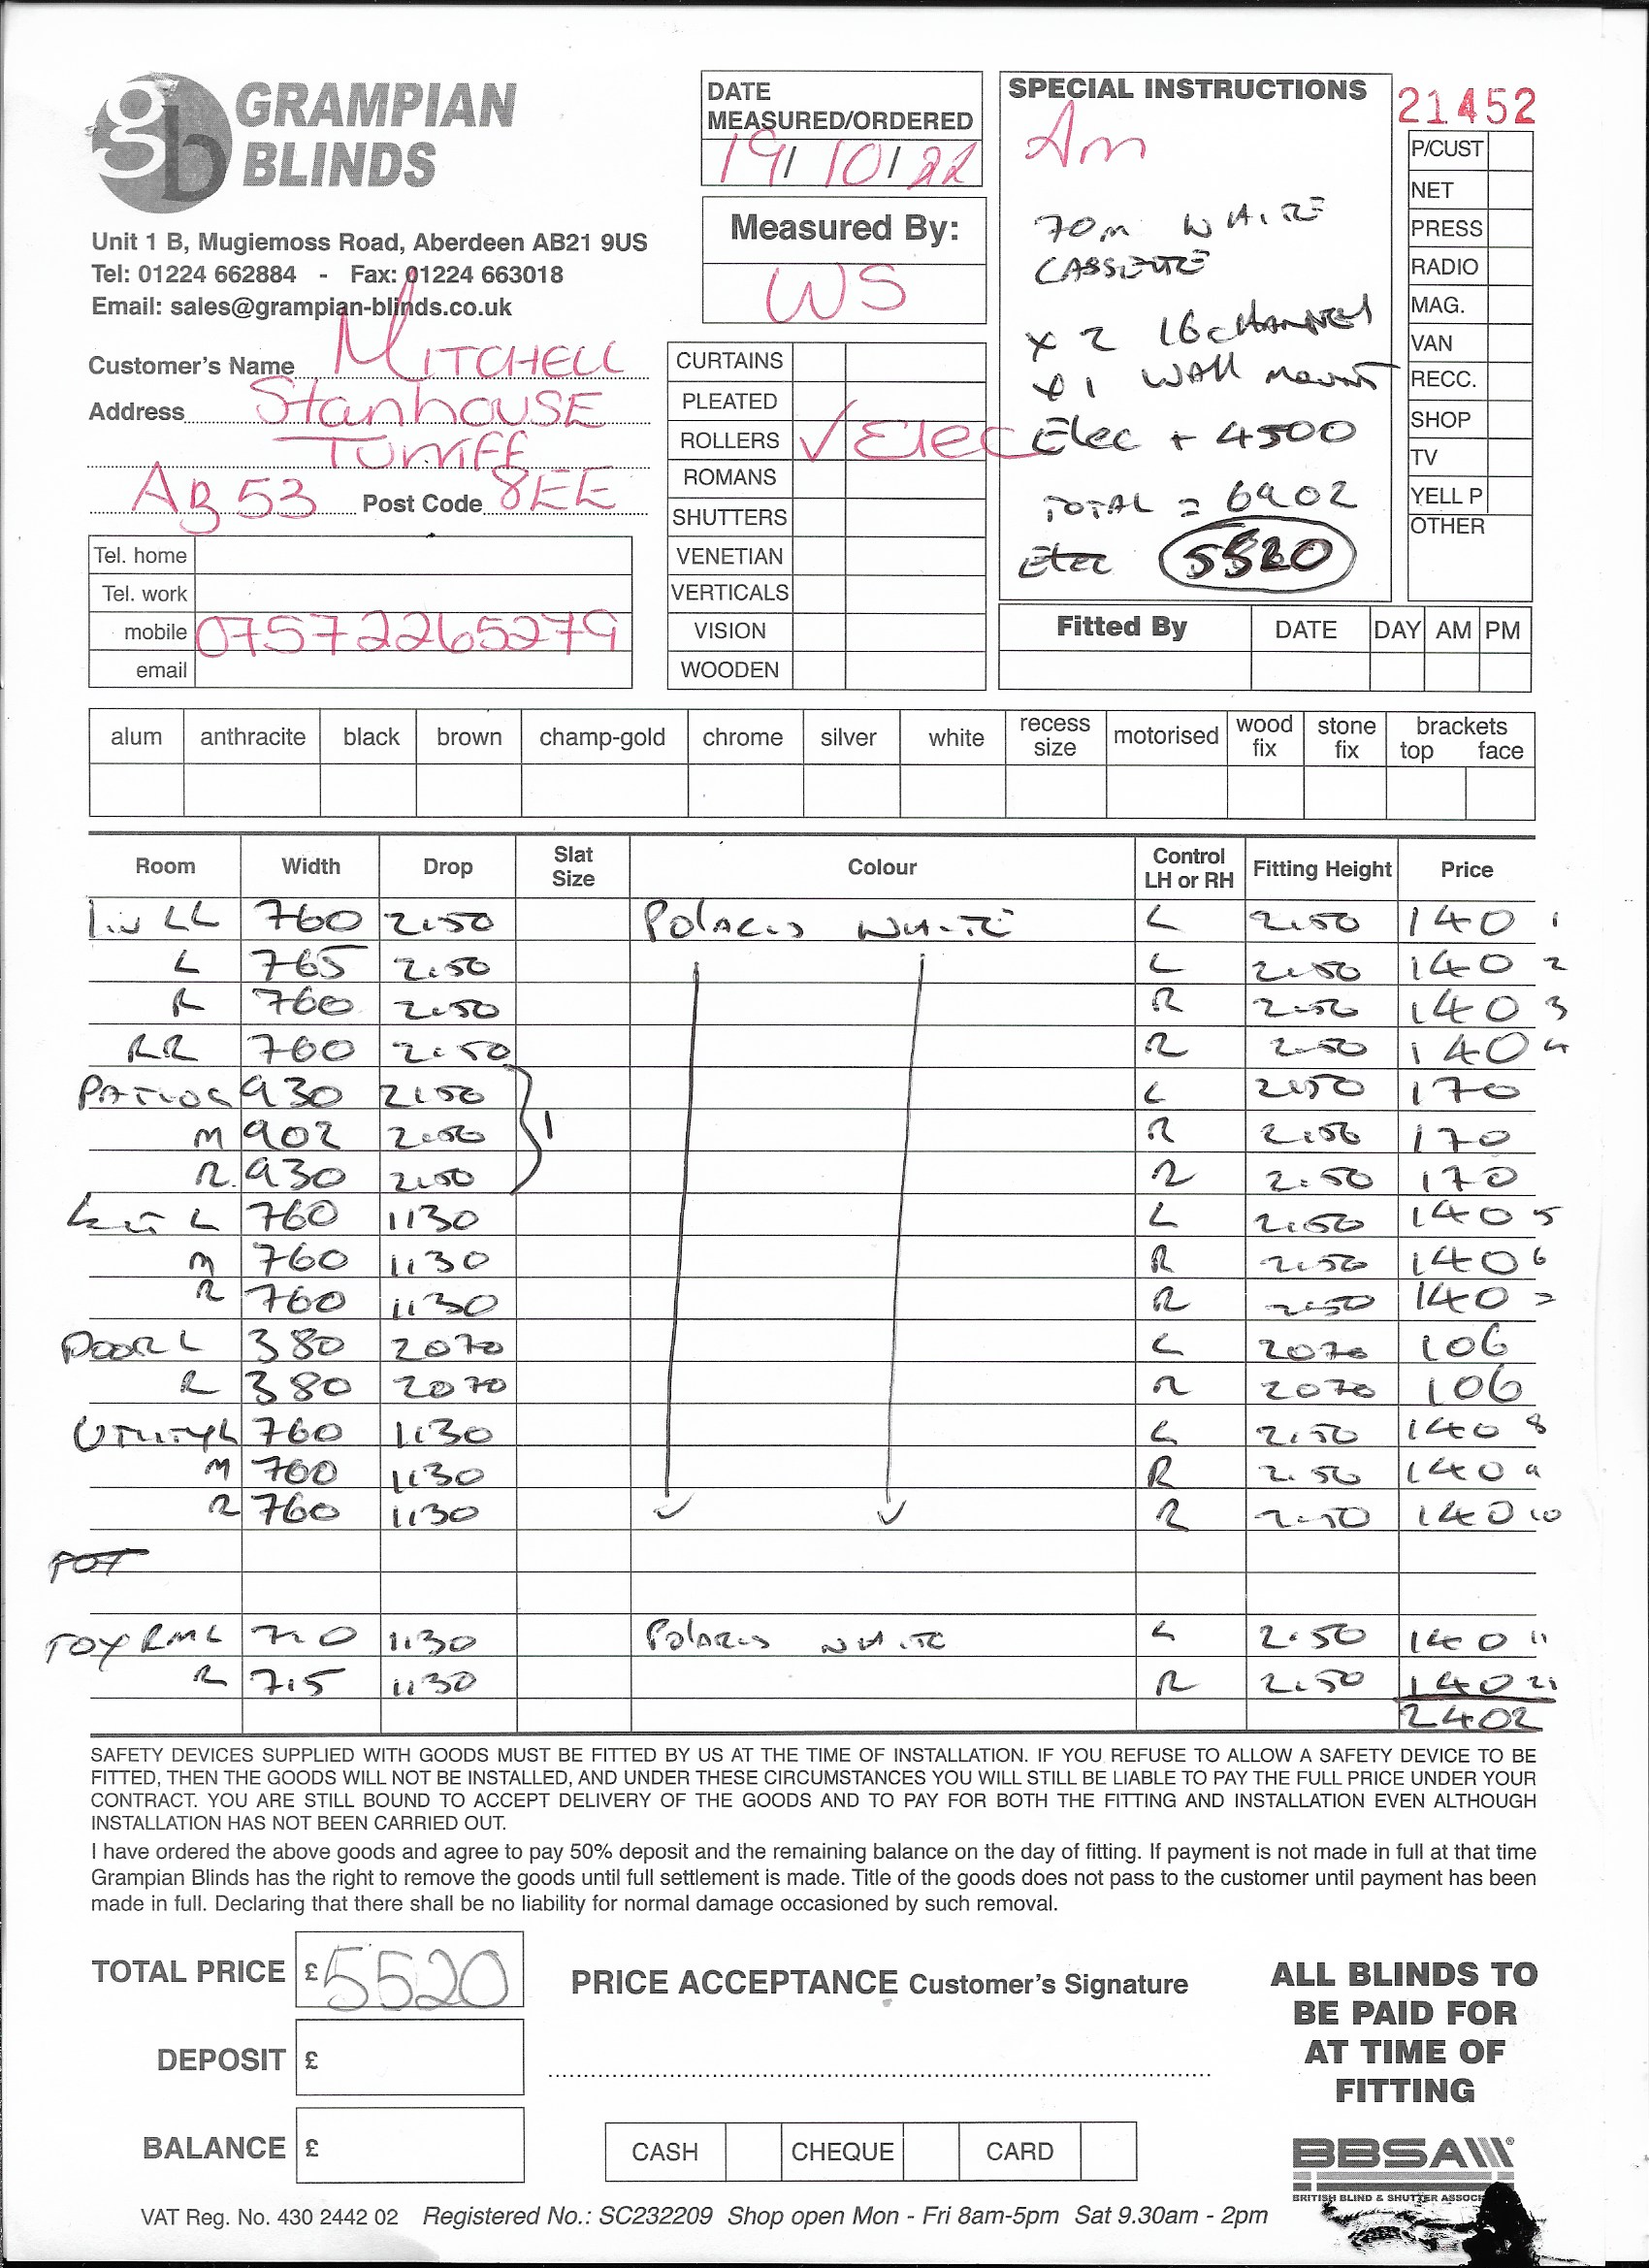 GRAMPIAN
BLINDS
Unit 1 B, Mugiemoss Road, Aberdeen AB21 9US
Tel: 01224 662884 - Fax: 01224 663018
Email: sales@grampian-blinds.co.uk
Customer's Name MITCHELL
Address StanhousE
Turriff
AB 53 Post Code 8EE
Tel. home
Tel. work
mobile 07572265279
email
DATE
MEASURED/ORDERED
19/ 10/ 22
Measured By:
WS
CURTAINS
PLEATED
ROLLERS ✓ Elec
ROMANS
SHUTTERS
VENETIAN
VERTICALS
VISION
WOODEN
SPECIAL INSTRUCTIONS
Am
70m WHITE
CASSETTE
x 2 16 CHANNEL
x 1 WALL mount
Elec + 4500
TOTAL = 6902
Elec 5520
21452
P/CUST
NET
PRESS
RADIO
MAG.
VAN
RECC.
SHOP
TV
YELL P
OTHER
Fitted By DATE DAY AM PM
alum anthracite black brown champ-gold chrome silver white recess size motorised wood fix stone fix brackets top face
Room Width Drop Slat Size Colour Control LH or RH Fitting Height Price
Liv LL 760 2.50 Polaris WHITE L 2.50 140 1
L 765 2.50 L 2.50 140 2
R 760 2.50 R 2.50 140 3
RR 760 2.50 R 2.50 140 4
PATIO 930 2.50 L 2.50 170
M 902 2.50 1 R 2.50 170
R 930 2.50 R 2.50 170
Kit L 760 1130 L 2.50 140 5
M 760 1130 R 2.50 140 6
R 760 1130 R 2.50 140 7
DOOR L 380 2070 L 2070 106
R 380 2070 R 2070 106
UTILITY L 760 1130 L 2.50 140 8
M 760 1130 R 2.50 140 9
R 760 1130 R 2.50 140 10
TOT
TOY RM L 720 1130 Polaris WHITE L 2.50 140 11
R 715 1130 R 2.50 140
2402
SAFETY DEVICES SUPPLIED WITH GOODS MUST BE FITTED BY US AT THE TIME OF INSTALLATION. IF YOU REFUSE TO ALLOW A SAFETY DEVICE TO BE
FITTED, THEN THE GOODS WILL NOT BE INSTALLED, AND UNDER THESE CIRCUMSTANCES YOU WILL STILL BE LIABLE TO PAY THE FULL PRICE UNDER YOUR
CONTRACT. YOU ARE STILL BOUND TO ACCEPT DELIVERY OF THE GOODS AND TO PAY FOR BOTH THE FITTING AND INSTALLATION EVEN ALTHOUGH
INSTALLATION HAS NOT BEEN CARRIED OUT.
I have ordered the above goods and agree to pay 50% deposit and the remaining balance on the day of fitting. If payment is not made in full at that time
Grampian Blinds has the right to remove the goods until full settlement is made. Title of the goods does not pass to the customer until payment has been
made in full. Declaring that there shall be no liability for normal damage occasioned by such removal.
TOTAL PRICE £ 5520
DEPOSIT £
BALANCE £
PRICE ACCEPTANCE Customer's Signature
CASH CHEQUE CARD
ALL BLINDS TO
BE PAID FOR
AT TIME OF
FITTING
BBSA
BRITISH BLIND & SHUTTER ASSOC
VAT Reg. No. 430 2442 02 Registered No.: SC232209 Shop open Mon - Fri 8am-5pm Sat 9.30am - 2pm